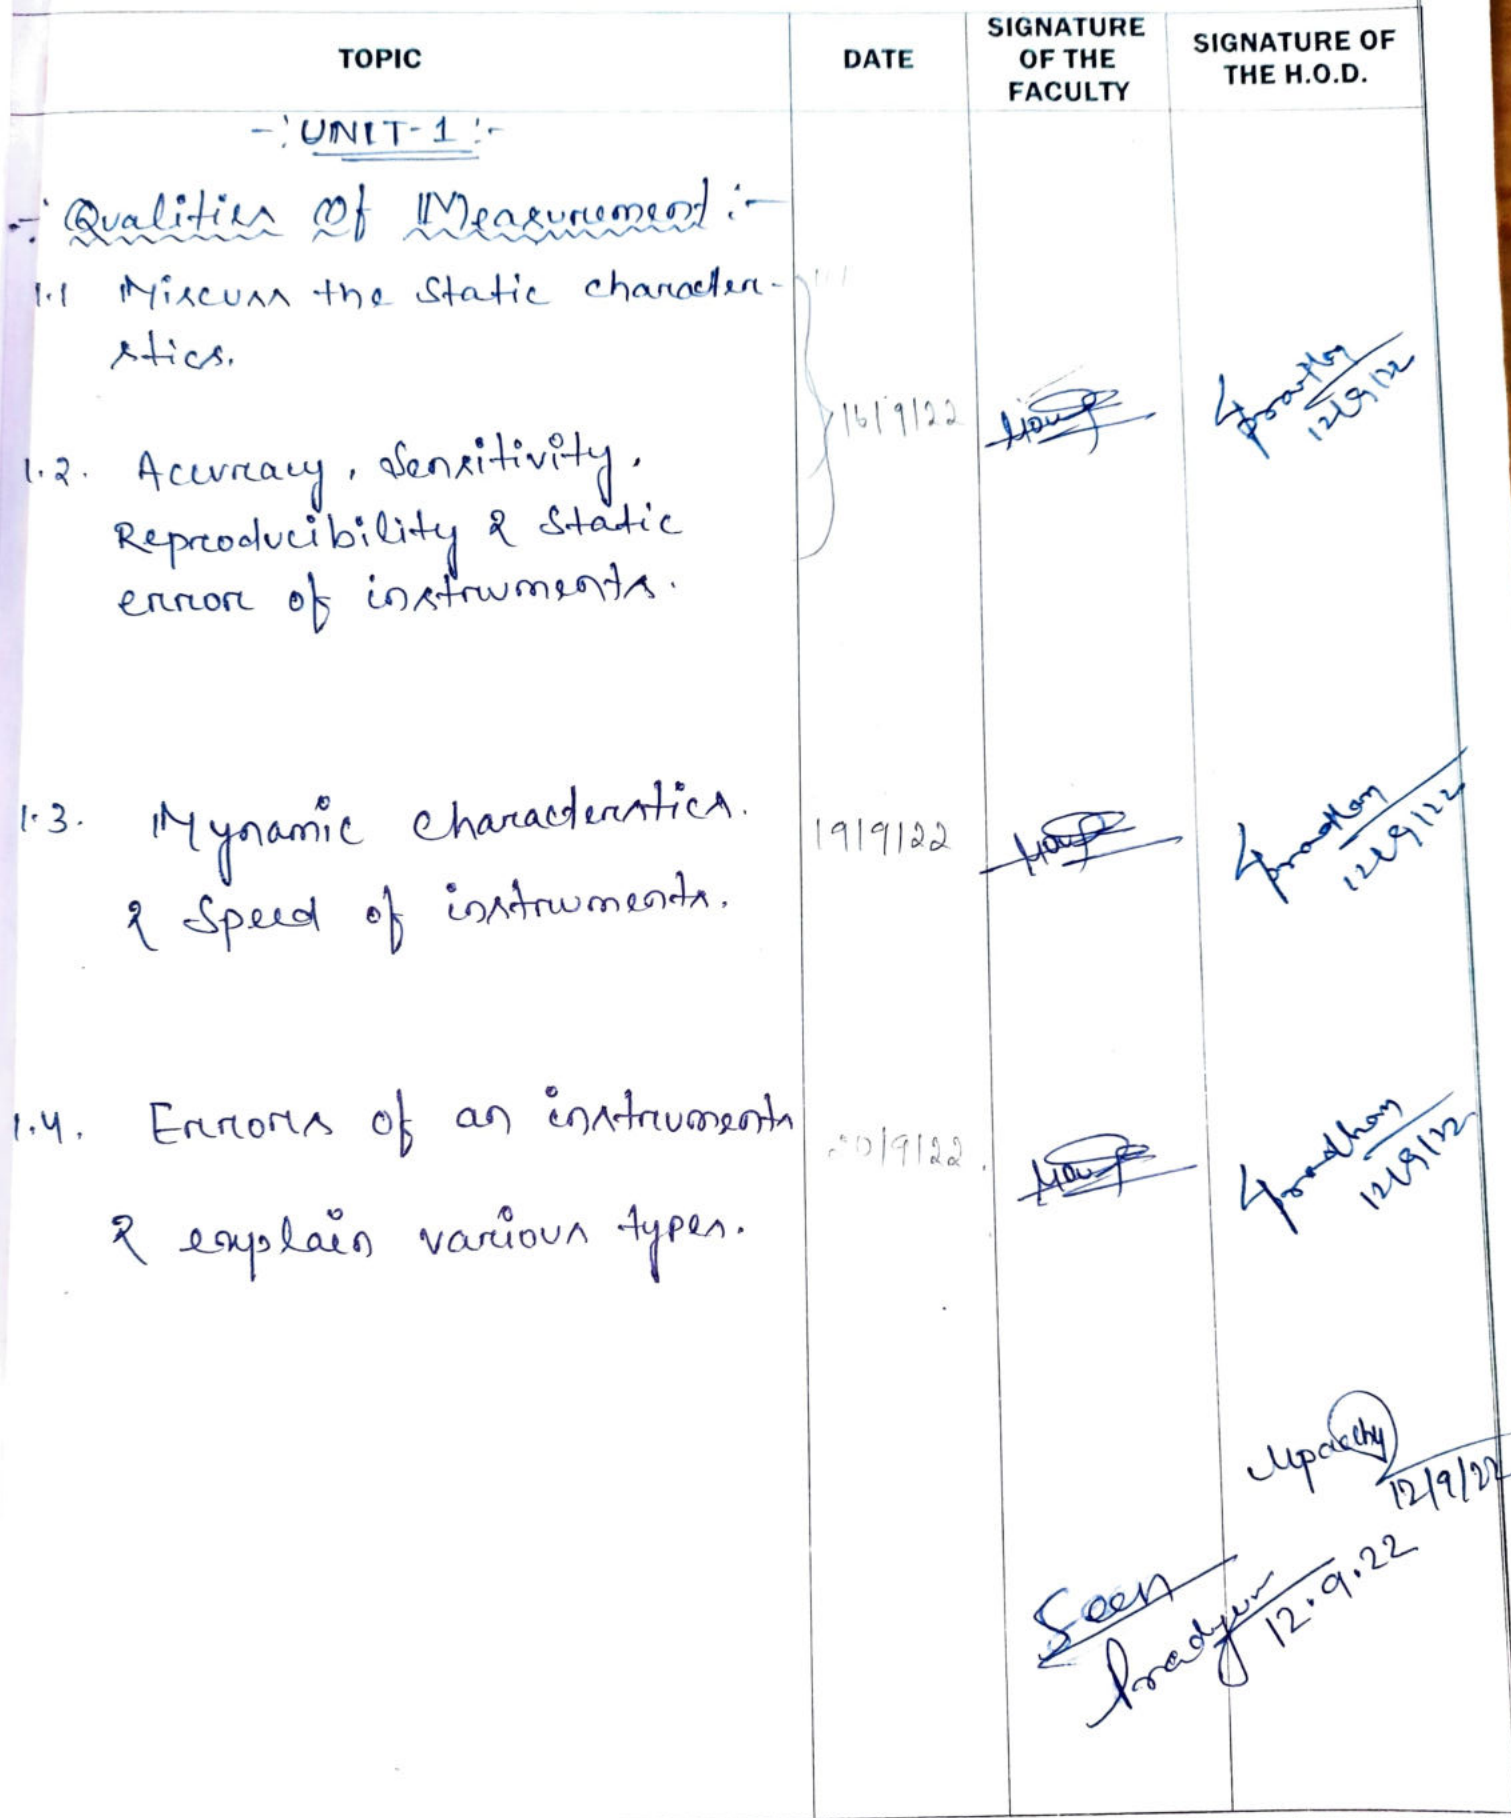 TOPIC
DATE
SIGNATURE
OF THE
FACULTY
SIGNATURE OF
THE H.O.D.
-: UNIT-1 :-
-: Qualities Of Measurement :-
1.1 Discuss the Static character-
stics.
1.2. Accuracy, Sensitivity,
Reproducibility & Static
error of instruments.
16/9/22
12/9/22
1.3. Dynamic characterstics.
& Speed of instruments.
19/9/22
12/9/22
1.4. Errors of an instruments
& explain various types.
20/9/22
Pradhan
12/9/22
12/9/22
Seen
12.9.22